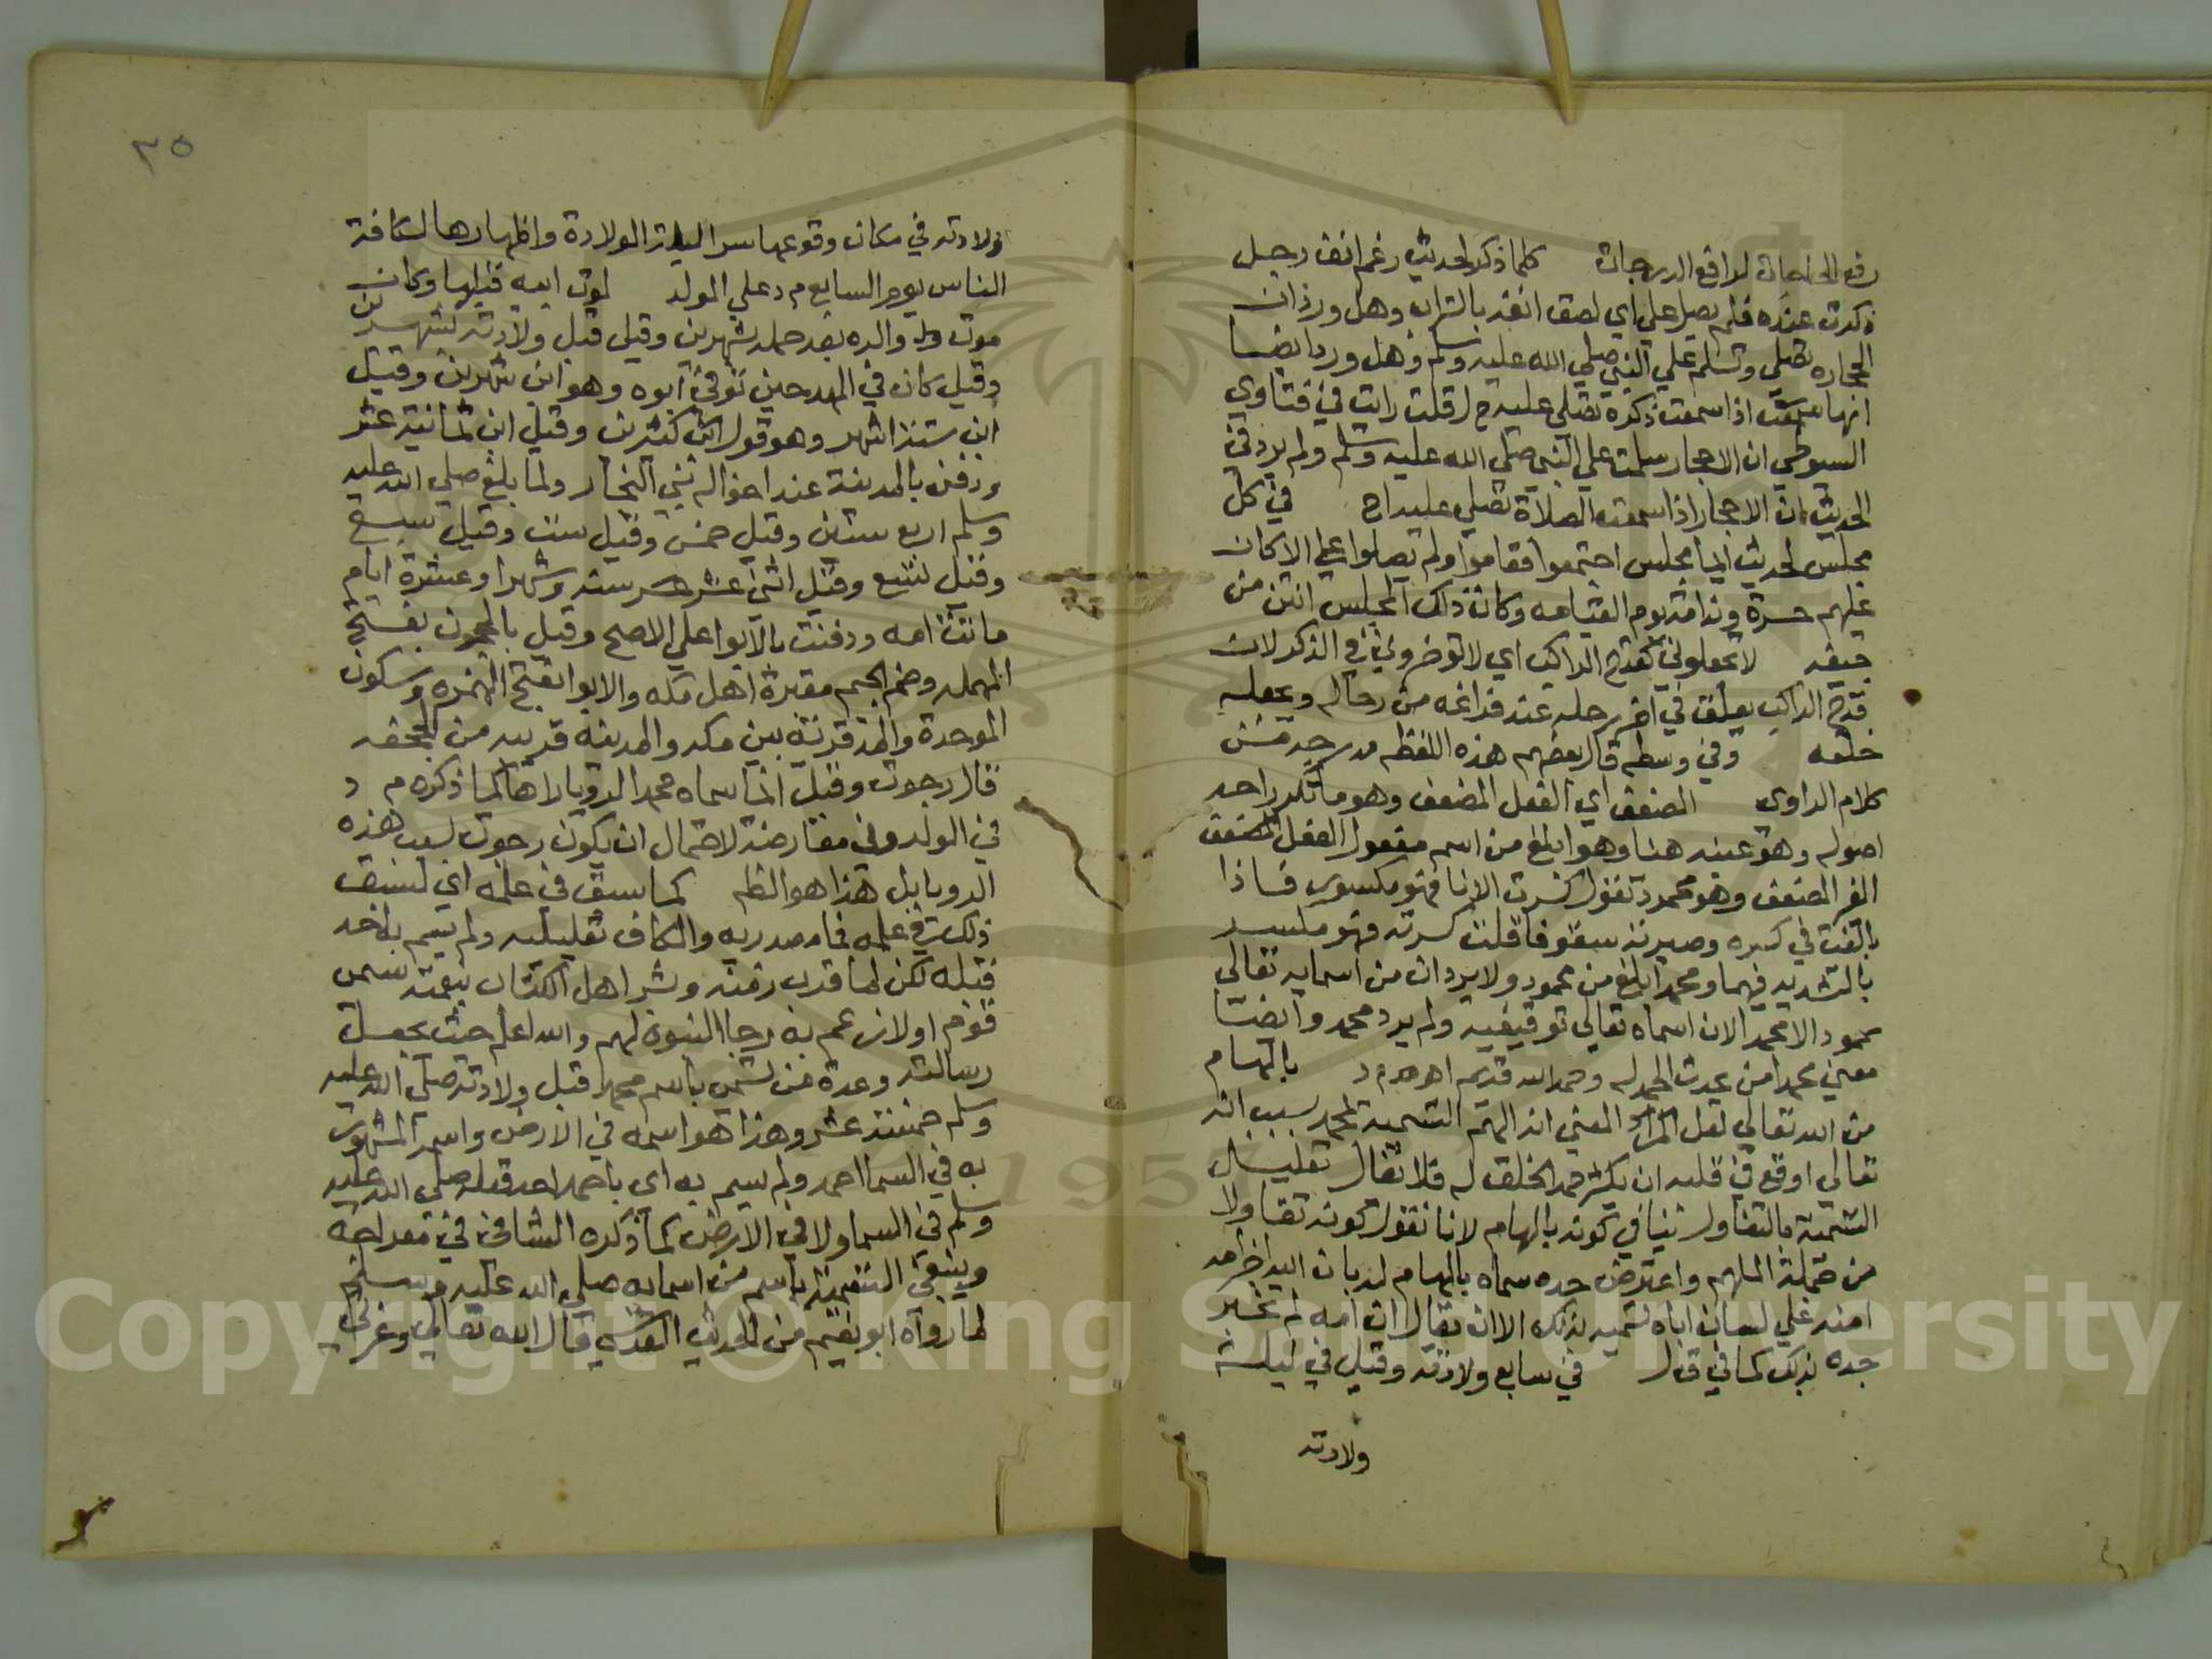 رفع الحاجات لرافع الدرجات كلما ذكر لحديث رغم انف رجل
ذكرت عنده فلم يصل علي اي لصق انفه بالتراب وهل ورد ان
الحجاره تصلي وتسلم علي النبي صلي الله عليه وسلم وهل ورد ايضا
انها اذا سمعت ذكره تصلي عليه قلت رايت في فتاوي
السيوطي ان الاحجار سلمت علي النبي صلي الله عليه وسلم ولم يرد في
الحديث ان الاحجار اذا سمعت الصلاة تصلي عليه اه في كل
مجلس لحديث ايما مجلس اجتمعوا فقاموا ولم يصلوا علي الا كان
عليهم حسرة وندامة يوم القيامه وكان ذلك المجلس انتن من
جيفه لا تجعلوني كقدح الراكب اي لا توخروني في الذكر لان
قدح الراكب يعلق في اخر رحله عند فراغه من رحاله ويجعله
خلفه وفي وسطه قال بعضهم هذه اللفظه مدرجه من
كلام الراوي المضعف اي الفعل المضعف وهو ما تكرر احد
اصوله وهو عينه هنا وهو ابلغ من اسم مفعول الفعل المضعف
الغير المضعف وهو محمود تقول كسرت الانا فهو مكسور فاذا
بالغت في كسره وصيرته سقوفا قلت كسرته فهو مكسر
بالتشديد فيهما ومحمد ابلغ من محمود ولا يرد ان من اسمايه تعالي
محمود الا محمد الان اسماه تعالي توقيفيه ولم يرد محمد وايضا
معني محمد من عدت الحمد له وحمد الله قديم اه م د بالهام
من الله تعالي لعل المراد المعني انه الهم التسميه لمحمد بسبب انه
تعالي اوقع في قلبه ان يكثر حمد الخلق له فلا يقال تعليل
التسميه بالتفاول ينافي كونه بالهام لانا نقول كونه تفاولا
من جملة الملهم واعترض جده سماه بالهام له بان اخر امه
امنه علي لسان اياه تسميه بذلك الا ان يقال ان امه لم تخبر
جده بذلك كما في ق ل في سابع ولادته وقيل في ليلة
ولادته
٣٥
ولادته في مكان وقوعها سرا ليلة الولادة واظهارها لكافة
الناس يوم السابع م د علي المولد لموت ابيه قبلها وكان
موت والده بعد حمله شهرين وقيل قبل ولادته بشهرين
وقيل كان في المهد حين توفي ابوه وهو ابن شهرين وقيل
ابن ستة اشهر وهو قول ابن كثيرين وقيل ابن ثمانية عشر
ودفن بالمدينة عند اخواله بني النجار ولما بلغ صلي الله عليه
وسلم اربع سنين وقيل خمس وقيل ست وقيل سبع
وقيل تسع وقيل اثني عشر سنه وشهرا وعشرة ايام
ماتت امه ودفنت بالابوا علي الاصح وقيل بالحجون بفتح
المهمله وضم الجيم مقبرة اهل مكه والابوا بفتح الهمزه وسكون
الموحدة والمد قرية بين مكه والمدينه قريبه من الجحفه
قال رجوت وقيل انما سماه محمد الرويا راها كما ذكره م د
في المولد وفي معارضته لاحتمال ان يكون رجوت لسبب هذه
الرويا بل هذا هو الظ كما سبق في علمه اي لسبق
ذلك في علمه فما مصدريه والكاف تعليليه ولم يسم به احد
قبله لكن لما قرب زمنه وبشر اهل الكتاب ببعثه سمي
قوم اولادهم به رجا النبوة لهم والله اعلم حيث يجعل
رسالته وعدة من تسمي باسم محمد قبل ولادته صلي الله عليه
وسلم خمسة عشر وهذا هو اسمه في الارض واسمه المشهور
به في السما احمد ولم يسم به اي باحمد احد قبله صلي الله عليه
وسلم في السما ولا في الارض كما ذكره الشافعي في معراجه
وينبغي التسمية باسم من اسمايه صلي الله عليه وسلم
لما رواه ابو نعيم من الحديث القدسي قال الله تعالي وعزتي
Copyright © King Saud University
1957